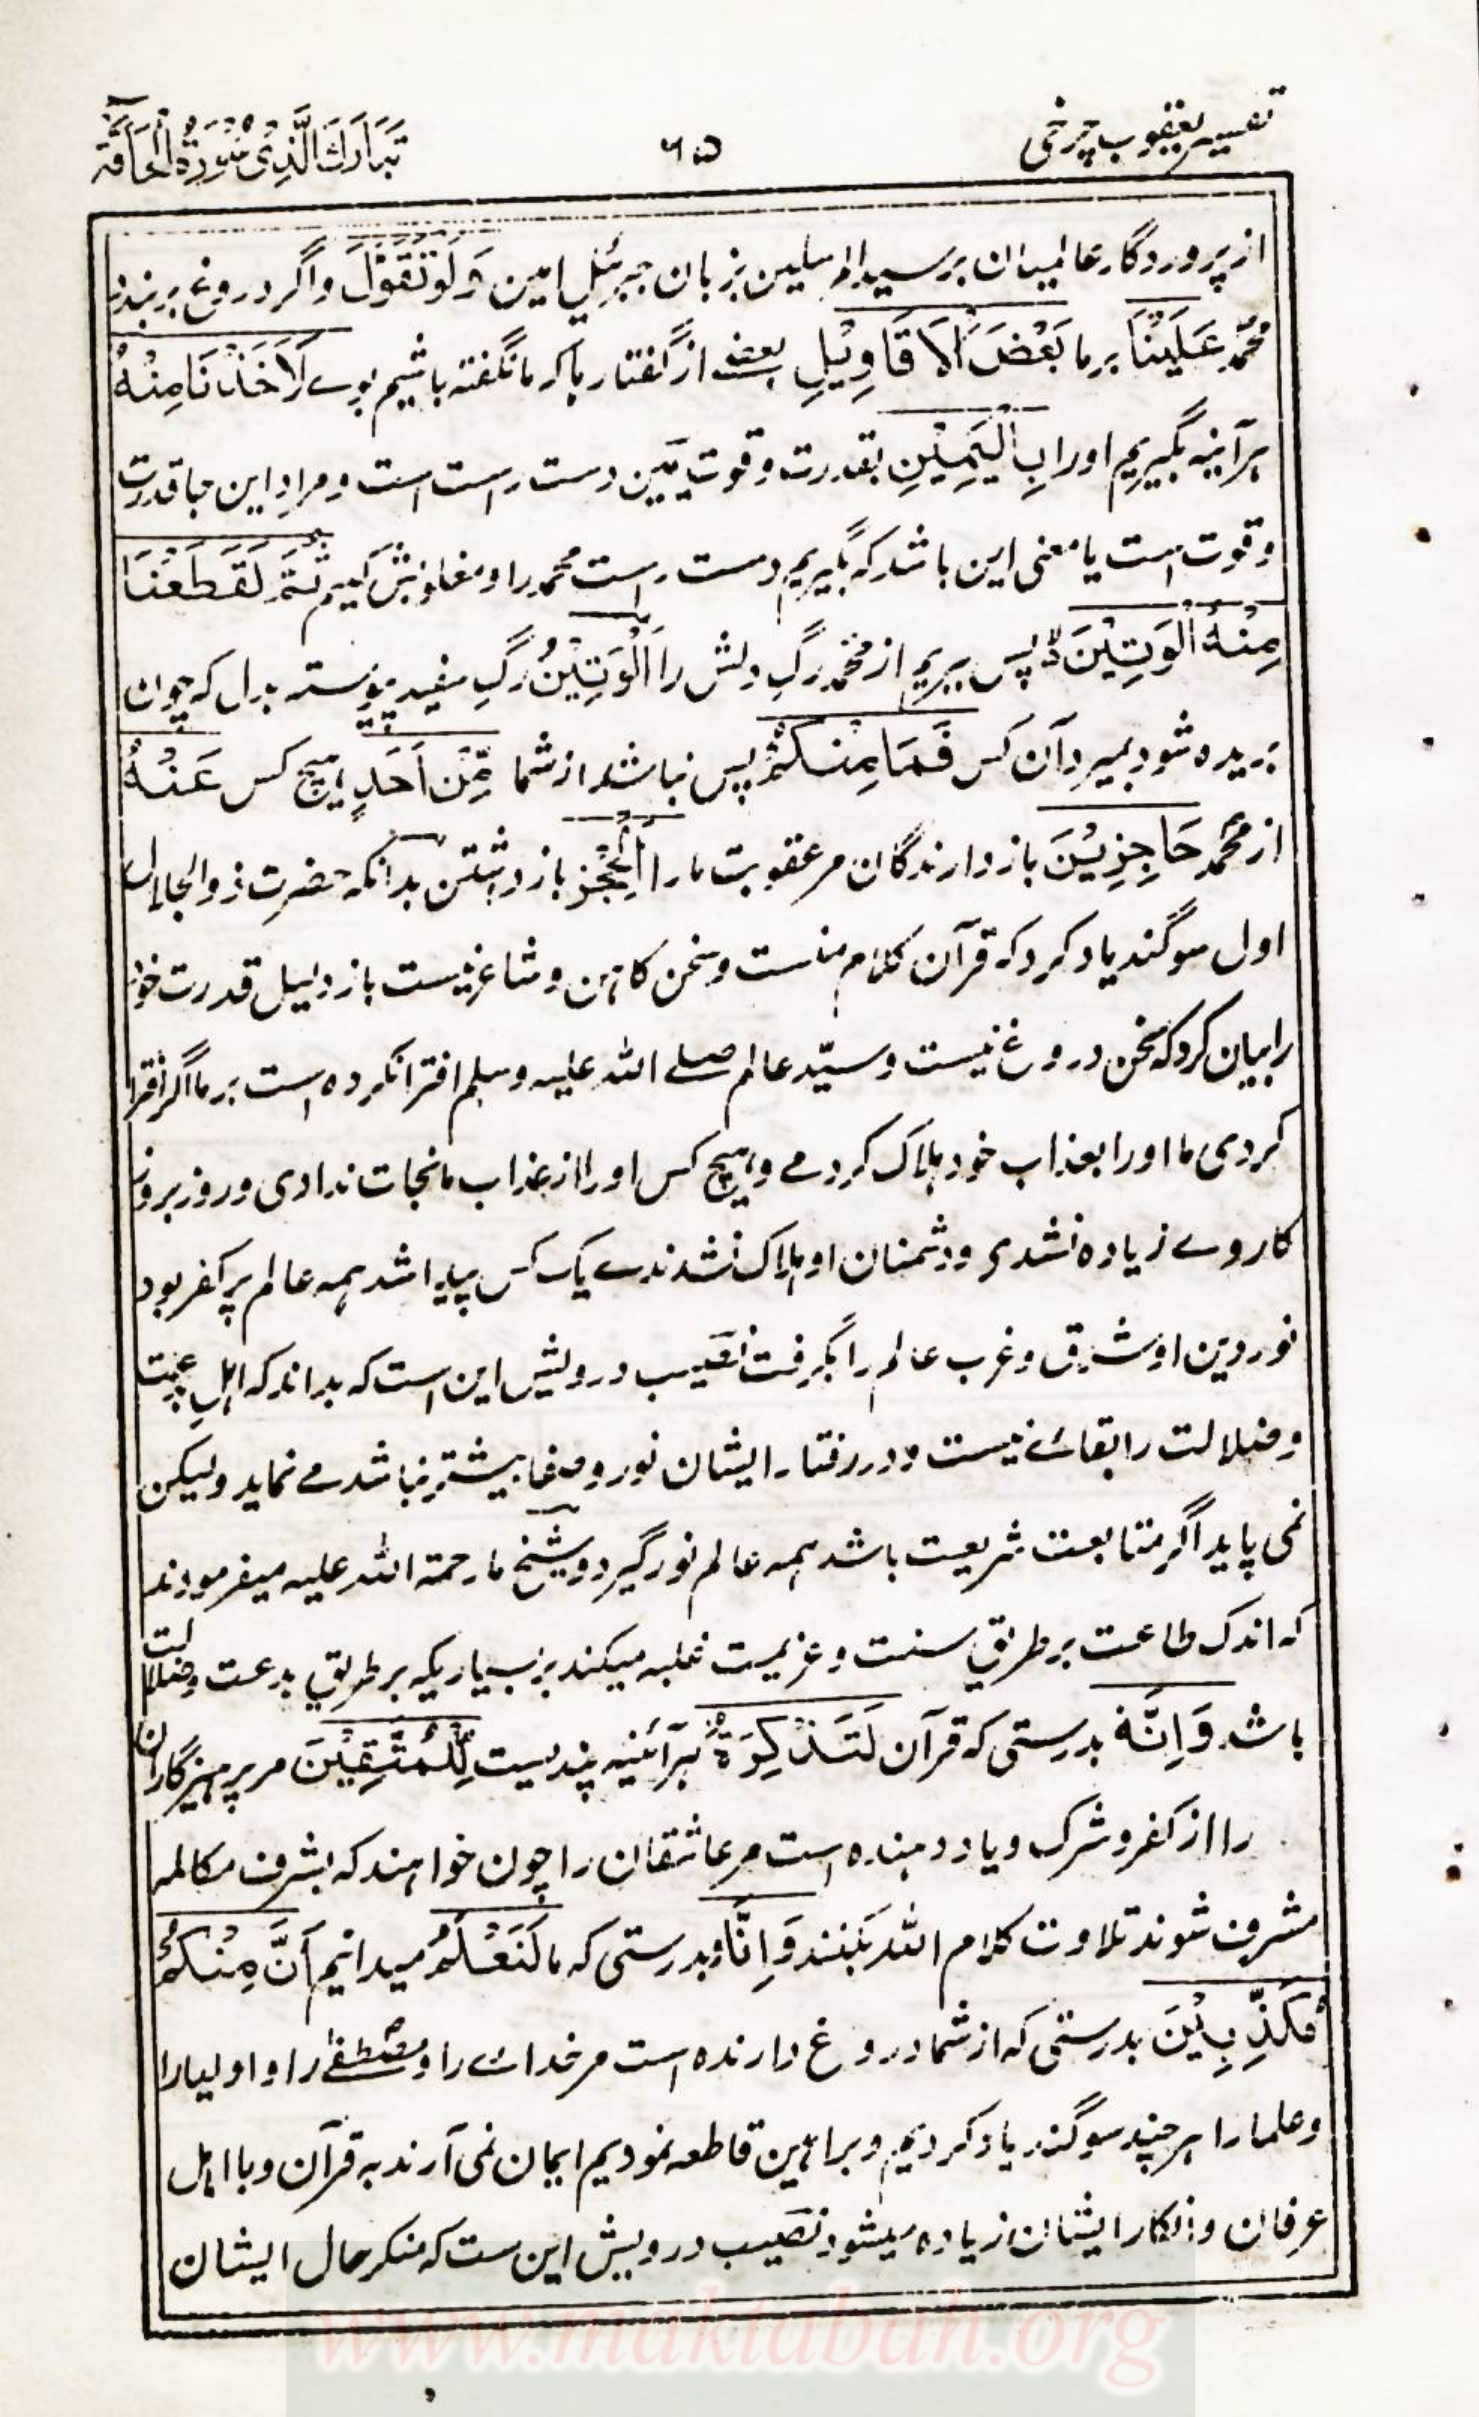 تفسیر یعقوب چرخی
۶۵
تَبَارَكَ الَّذِیْ سُوْرَةُ الْحَاقَّة
از پروردگار عالمیان بر سید المرسلین بزبان جبرئیل امین وَلَوْ تَقَوَّلَ واگر دروغ بر بندد
محمد عَلَیْنَا بر ما بَعْضَ الْاَقَاوِیْلِ بعضے از گفتار ہا کہ ما نگفتہ باشیم بوے لَاَخَذْنَا مِنْهُ
ہر آئینہ بگیریم او را بِالْیَمِیْنِ بقدرت و قوت یمین دست راست است و مراد این جا قدرت
و قوت است یا معنی این باشد کہ بگیریم دست راست محمد را و مغلوبش کنیم ثُمَّ لَقَطَعْنَا
مِنْهُ الْوَتِیْنَ پس ببریم از محمد رگ دلش را اَلْوَتِیْنُ رگ سفید پیوستہ بدل کہ چون
بریدہ شود بمیرد آن کس فَمَا مِنْكُمْ پس نباشد از شما مِّنْ اَحَدٍ ہیچ کس عَنْهُ
از محمد حَاجِزِیْنَ باز دارندگان مر عقوبت ما را اَلْحَجْزُ باز داشتن بدانکہ حضرت ذوالجلال
اول سوگند یاد کرد کہ قرآن کلام منست و سخن کاہن و شاعر نیست باز دلیل قدرت خود
را بیان کرد کہ سخن دروغ نیست و سیّد عالم صلے اللہ علیہ وسلم افترا نکردہ است بر ما اگر افترا
کردی ما او را بعذاب خود ہلاک کردمے و ہیچ کس او را از عذاب ما نجات ندادی و روز بروز
کار وے زیادہ نشدی و دشمنان او ہلاک نشدندے یک کس پیدا شد ہمہ عالم پر کفر بود
نور دین او شرق و غرب عالم را بگرفت نصیب درویش این است کہ بداند کہ اہل بدعت
و ضلالت را بقائے نیست و در رفتار ایشان نور و صفا بیشتر نباشد مے نماید ولیکن
نمی پاید اگر متابعت شریعت باشد ہمہ عالم نور گیرد و شیخ ما رحمة اللہ علیہ میفرمودند
کہ اندک طاعت بر طریق سنت و عزیمت غلبہ میکند بر بسیاریکہ بر طریق بدعت و ضلالت
باشد وَاِنَّهٗ بدرستی کہ قرآن لَتَذْكِرَةٌ ہر آئینہ پندیست لِّلْمُتَّقِیْنَ مر پرہیزگاران
را از کفر و شرک و یاد دہندہ است مر عاشقان را چون خواہند کہ بشرف مکالمہ
مشرف شوند تلاوت کلام اللہ بکنند وَاِنَّا و بدرستی کہ ما لَنَعْلَمُ میدانیم اَنَّ مِنْكُمْ
مُّكَذِّبِیْنَ بدرستی کہ از شما دروغ دارندہ است مر خدائے را و مصطفے را و اولیا را
و علما را ہر چند سوگند یاد کردیم و براہین قاطعہ نمودیم ایمان نمی آرند بہ قرآن و با اہل
عرفان و انکار ایشان زیادہ میشود نصیب درویش این ست کہ منکر حال ایشان
www.maktabah.org